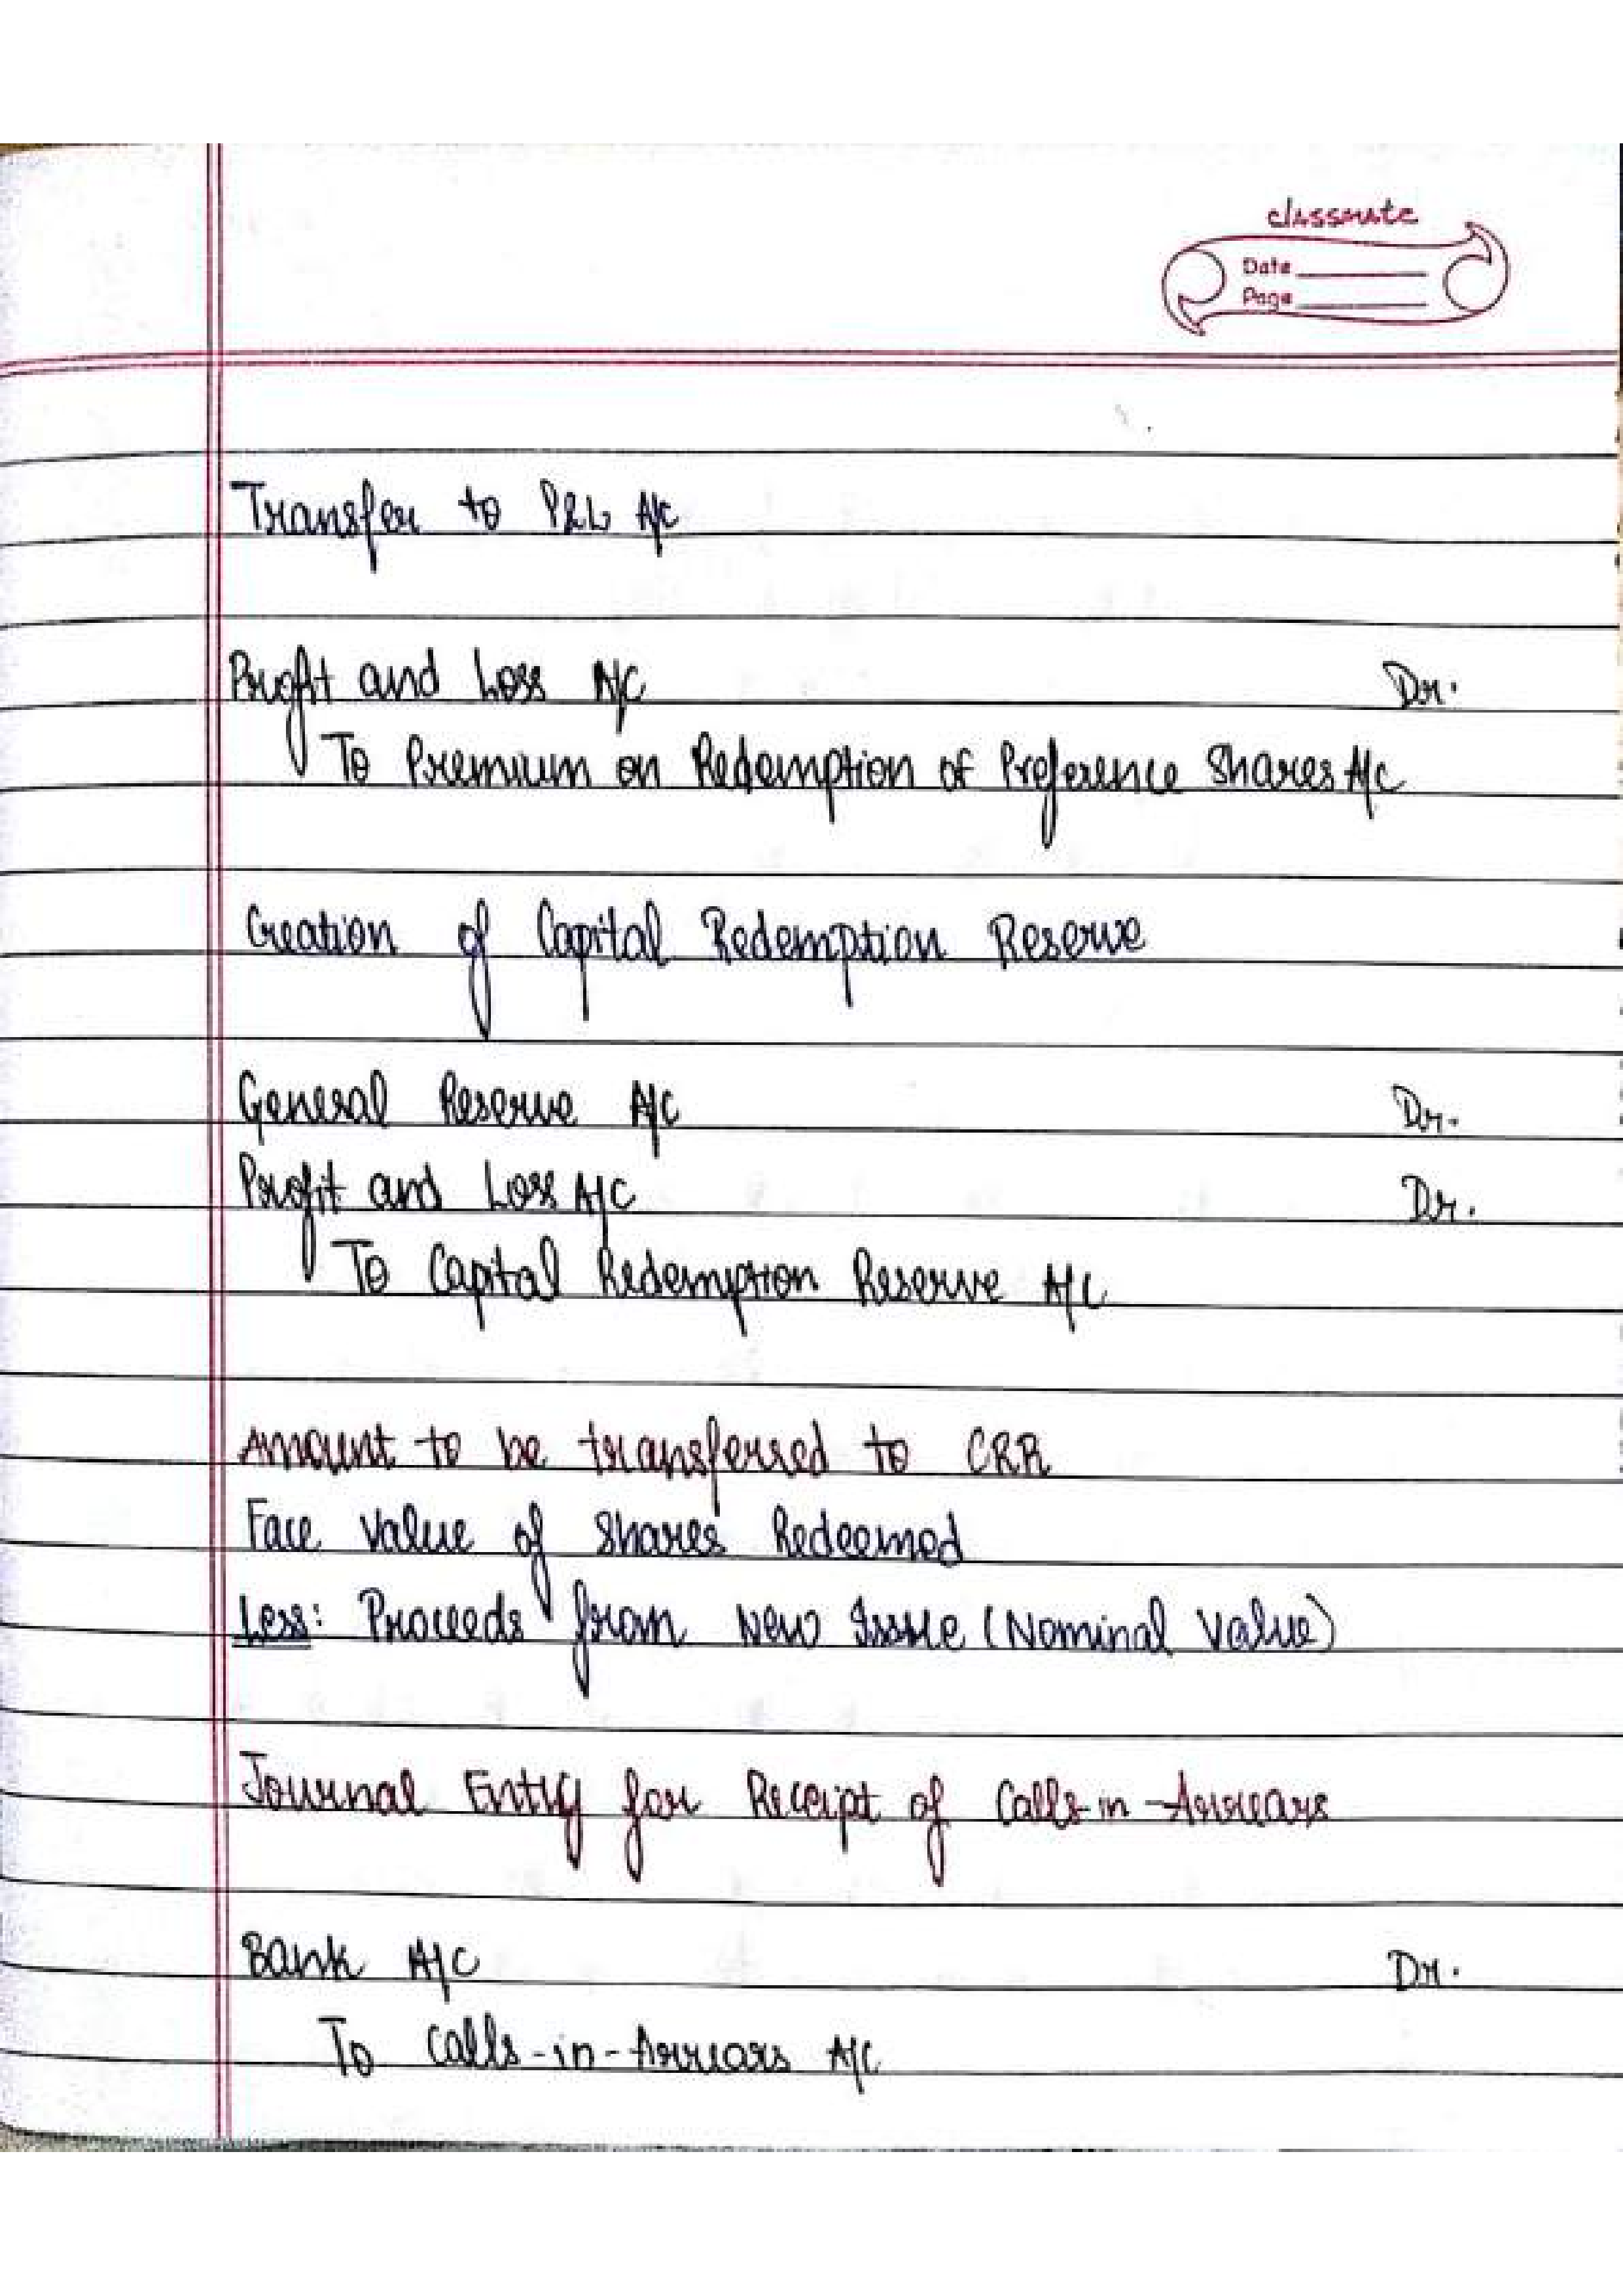 classmate
Date
Page
Transfer to P&L A/c
Profit and Loss A/C Dr.
To Premium on Redemption of Preference Shares A/c
Creation of Capital Redemption Reserve
General Reserve A/C Dr.
Profit and Loss A/C Dr.
To Capital Redemption Reserve A/C
Amount to be transferred to CRR
Face Value of Shares Redeemed
Less: Proceeds from New Issue (Nominal Value)
Journal Entry for Receipt of Calls-in-Arrears
Bank A/C Dr.
To Calls-in-Arrears A/C